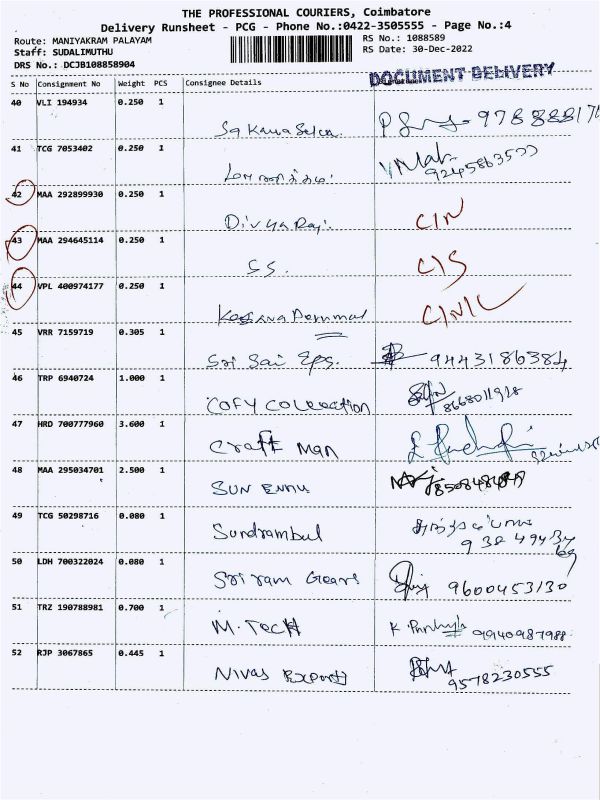 THE PROFESSIONAL COURIERS, Coimbatore
Delivery Runsheet - PCG - Phone No.:0422-3505555 - Page No.:4
Route: MANIYAKRAM PALAYAM
RS No.: 1088589
Staff: SUDALIMUTHU
RS Date: 30-Dec-2022
DRS No.: DCJB108858904
S No Consignment No Weight PCS Consignee Details
DOCUMENT DELIVERY
40 VLI 194934 0.250 1
41 TCG 7053402 0.250 1
9245863533
42 MAA 292899930 0.250 1
Divya Raj. CIN
43 MAA 294645114 0.250 1
SS. CIS
44 VPL 400974177 0.250 1
Perumal
45 VRR 7159719 0.305 1
Sri Sai Eps. 9443186384
46 TRP 6940724 1.000 1
COFY COLLECTION
47 HRD 700777960 3.600 1
Craft Man
48 MAA 295034701 2.500 1
SUN
49 TCG 50298716 0.080 1
Sundrambul
50 LDH 700322024 0.080 1
Sriram Gears 9600453130
51 TRZ 190788981 0.700 1
M. Tech K 9940987988
52 RJP 3067865 0.445 1
Nivas Export 9578230555